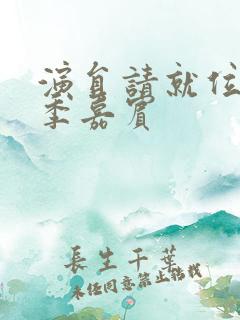 演員請就位
季嘉賓
長生千葉
未經同意禁止轉載